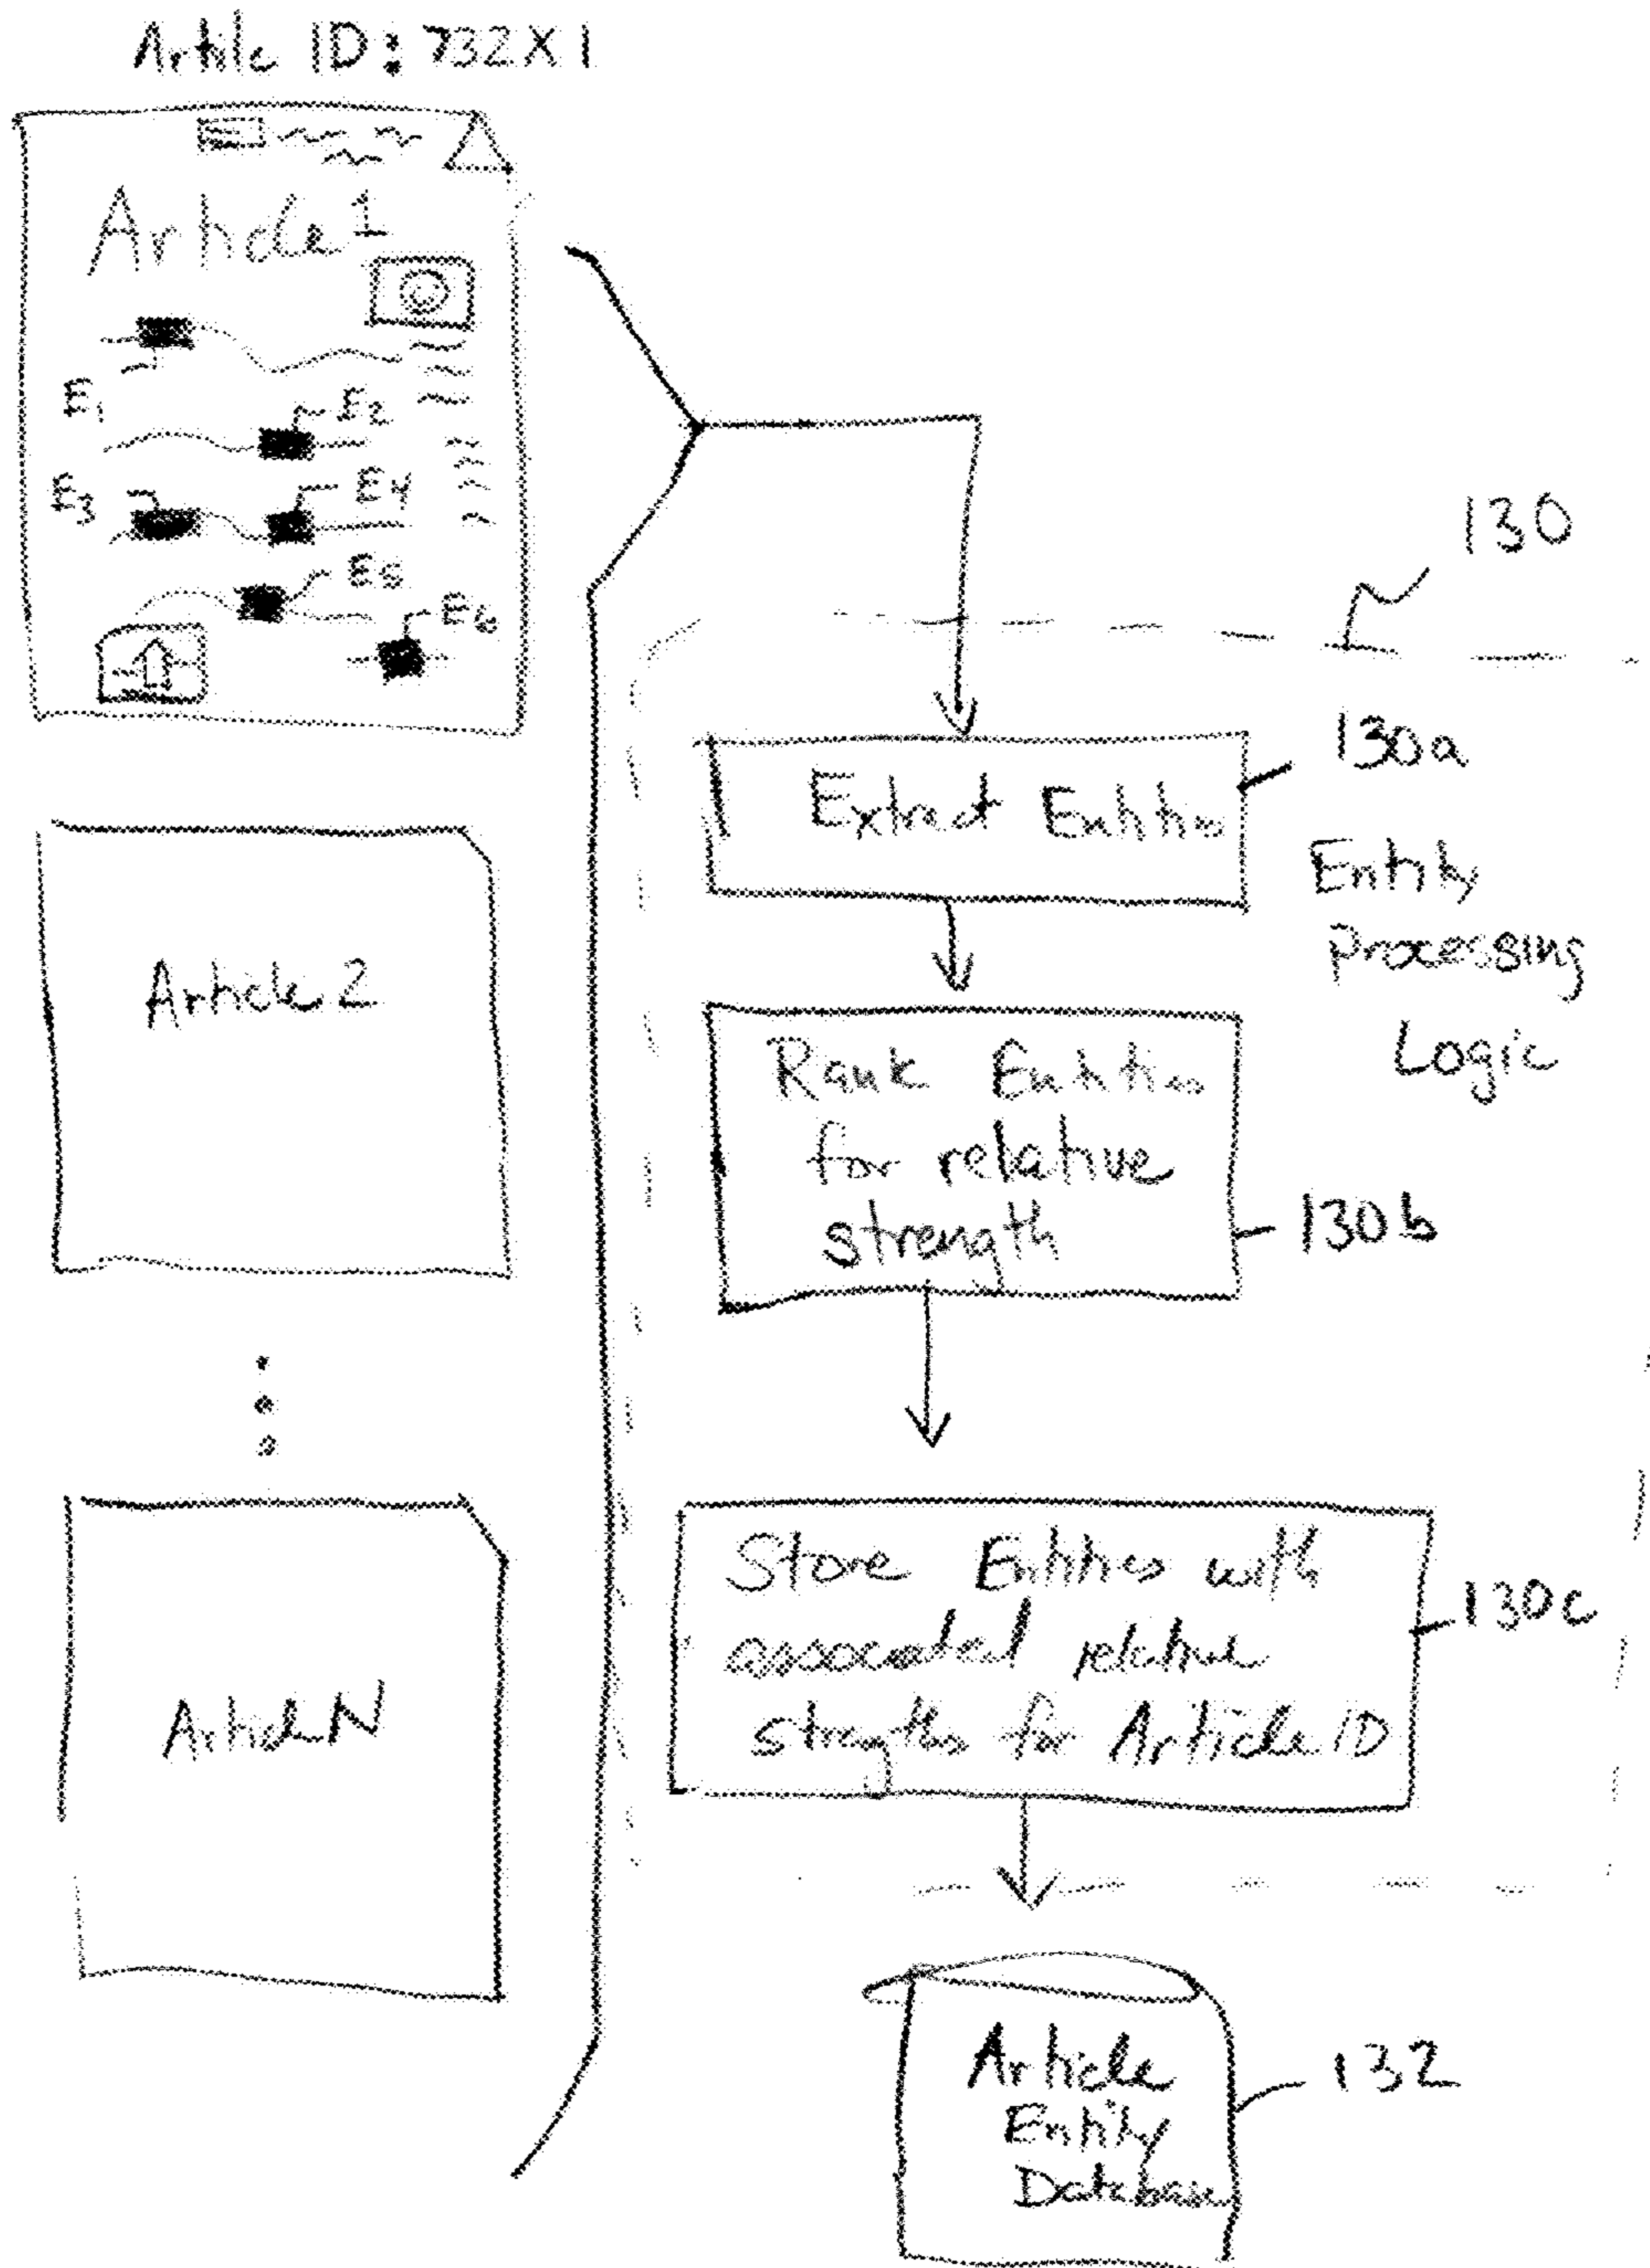 Article ID: 732X1
Article 1
E1
E2
E3
E4
E5
E6
Article 2
Article N
130
Extract Entities
130a
Entity
Processing
Logic
Rank Entities
for relative
strength
130b
Store Entities with
associated relative
strengths for Article ID
130c
Article
Entity
Database
132